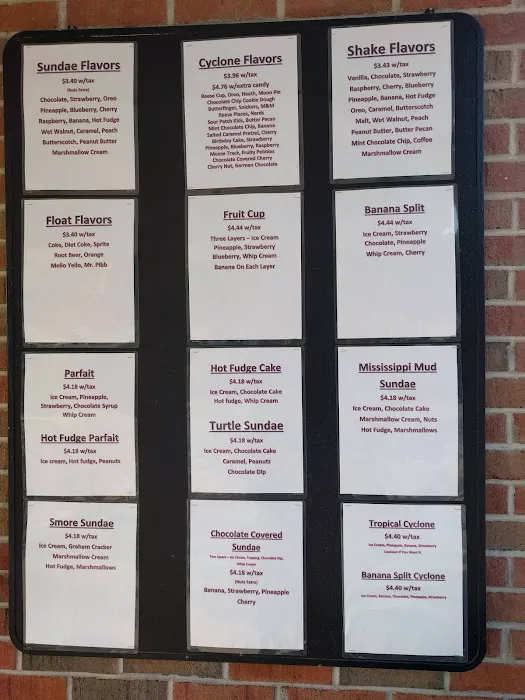 Sundae Flavors
$3.40 w/tax
(Nuts Extra)
Chocolate, Strawberry, Oreo
Pineapple, Blueberry, Cherry
Raspberry, Banana, Hot Fudge
Wet Walnut, Caramel, Peach
Butterscotch, Peanut Butter
Marshmallow Cream
Cyclone Flavors
$3.96 w/tax
$4.76 w/extra candy
Reese Cup, Oreo, Heath, Moon Pie
Chocolate Chip Cookie Dough
Butterfinger, Snickers, M&M
Reese Pieces, Nerds
Sour Patch Kids, Butter Pecan
Mint Chocolate Chip, Banana
Salted Caramel Pretzel, Cherry
Birthday Cake, Strawberry
Pineapple, Blueberry, Raspberry
Moose Track, Fruity Pebbles
Chocolate Covered Cherry
Cherry Nut, German Chocolate
Shake Flavors
$3.43 w/tax
Vanilla, Chocolate, Strawberry
Raspberry, Cherry, Blueberry
Pineapple, Banana, Hot Fudge
Oreo, Caramel, Butterscotch
Malt, Wet Walnut, Peach
Peanut Butter, Butter Pecan
Mint Chocolate Chip, Coffee
Marshmallow Cream
Float Flavors
$3.40 w/tax
Coke, Diet Coke, Sprite
Root Beer, Orange
Mello Yello, Mr. Pibb
Fruit Cup
$4.44 w/tax
Three Layers – Ice Cream
Pineapple, Strawberry
Blueberry, Whip Cream
Banana On Each Layer
Banana Split
$4.44 w/tax
Ice Cream, Strawberry
Chocolate, Pineapple
Whip Cream, Cherry
Parfait
$4.18 w/tax
Ice Cream, Pineapple,
Strawberry, Chocolate Syrup
Whip Cream
Hot Fudge Parfait
$4.18 w/tax
Ice cream, Hot fudge, Peanuts
Hot Fudge Cake
$4.18 w/tax
Ice Cream, Chocolate Cake
Hot fudge, Whip Cream
Turtle Sundae
$4.18 w/tax
Ice Cream, Chocolate Cake
Caramel, Peanuts
Chocolate Dip
Mississippi Mud
Sundae
$4.18 w/tax
Ice Cream, Chocolate Cake
Marshmallow Cream, Nuts
Hot Fudge, Marshmallows
Smore Sundae
$4.18 w/tax
Ice Cream, Graham Cracker
Marshmallow Cream
Hot Fudge, Marshmallows
Chocolate Covered
Sundae
Ice Cream, Topping, Chocolate Dip,
Whip Cream
$4.18 w/tax
(Nuts Extra)
Banana, Strawberry, Pineapple
Cherry
Tropical Cyclone
$4.40 w/tax
Ice Cream, Pineapple, Banana, Strawberry
Coconut if You Want it.
Banana Split Cyclone
$4.40 w/tax
Ice Cream, Banana, Chocolate, Pineapple, Strawberry